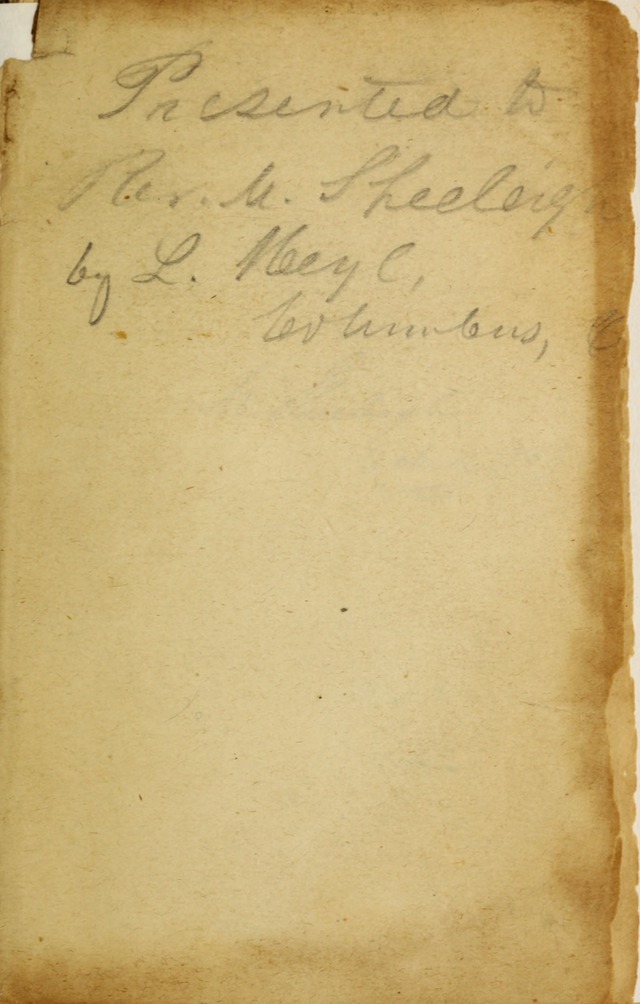 Presented to
Rev. M. Sheeleigh
by L. Heyl,
Columbus, O